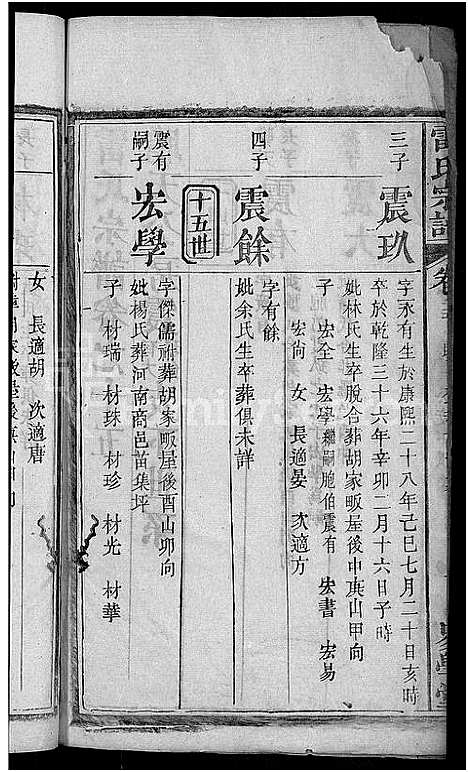 雷氏宗譜
三子
震玖
字永有生於康熙二十八年己巳七月二十日亥時
卒於乾隆三十六年辛卯二月十六日子時
妣林氏生卒脫合葬胡家畈屋後中嶺山甲向
子 宏全 宏學繼嗣胞伯震有 宏書 宏易
宏尙 女 長適晏 次適方
四子
震餘
字有餘
妣余氏生卒葬俱未詳
十五世
震有嗣子
宏學
字傑儒祔葬胡家畈屋後酉山卯向
妣楊氏葬河南商邑苗集坪
子 材瑞 材珠 材珍 材光 材華
女 長適胡 次適唐